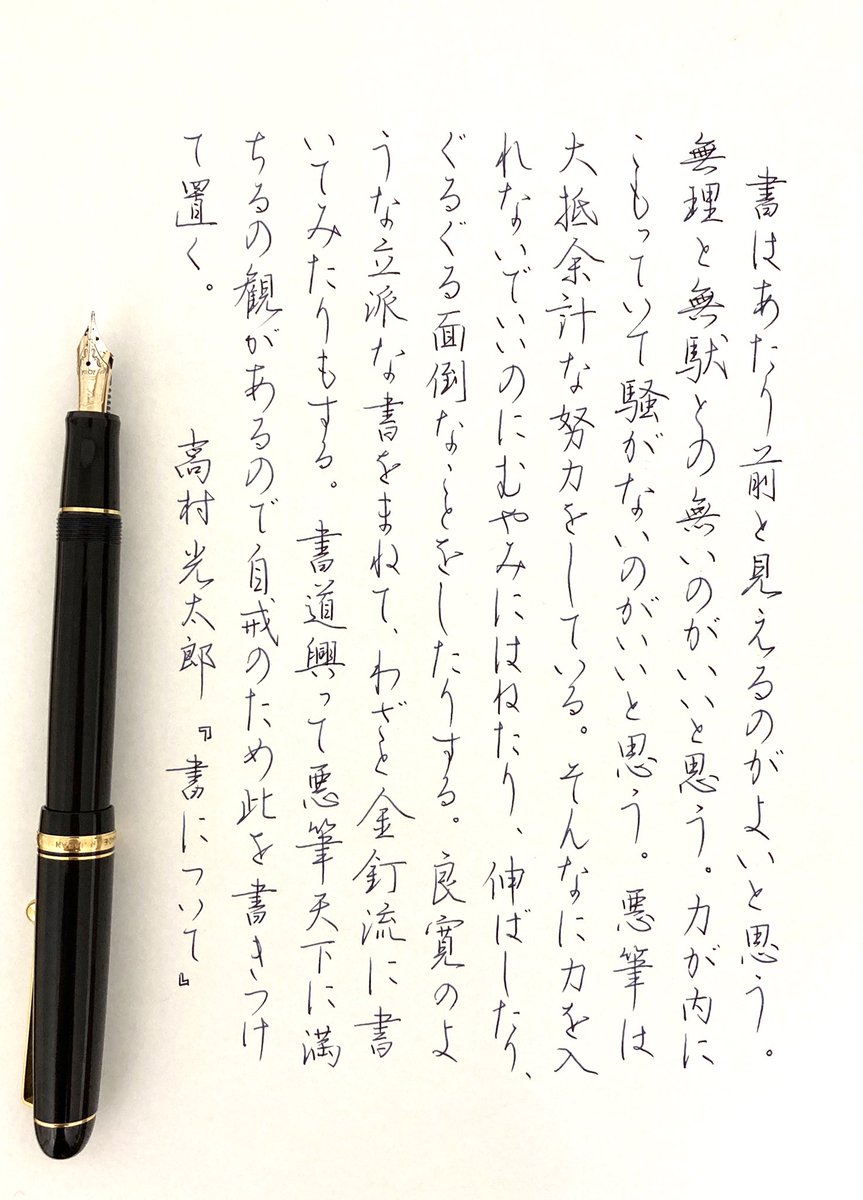 書はあたり前と見えるのがよいと思う。
無理と無駄との無いのがいいと思う。力が内に
こもっていて騒がないのがいいと思う。悪筆は
大抵余計な努力をしている。そんなに力を入
れないでいいのにむやみにはねたり、伸ばしたり、
ぐるぐる面倒なことをしたりする。良寛のよ
うな立派な書をまねて、わざと金釘流に書
いてみたりもする。書道興って悪筆天下に満
ちるの観があるので自戒のため此を書きつけ
て置く。
高村光太郎『書について』